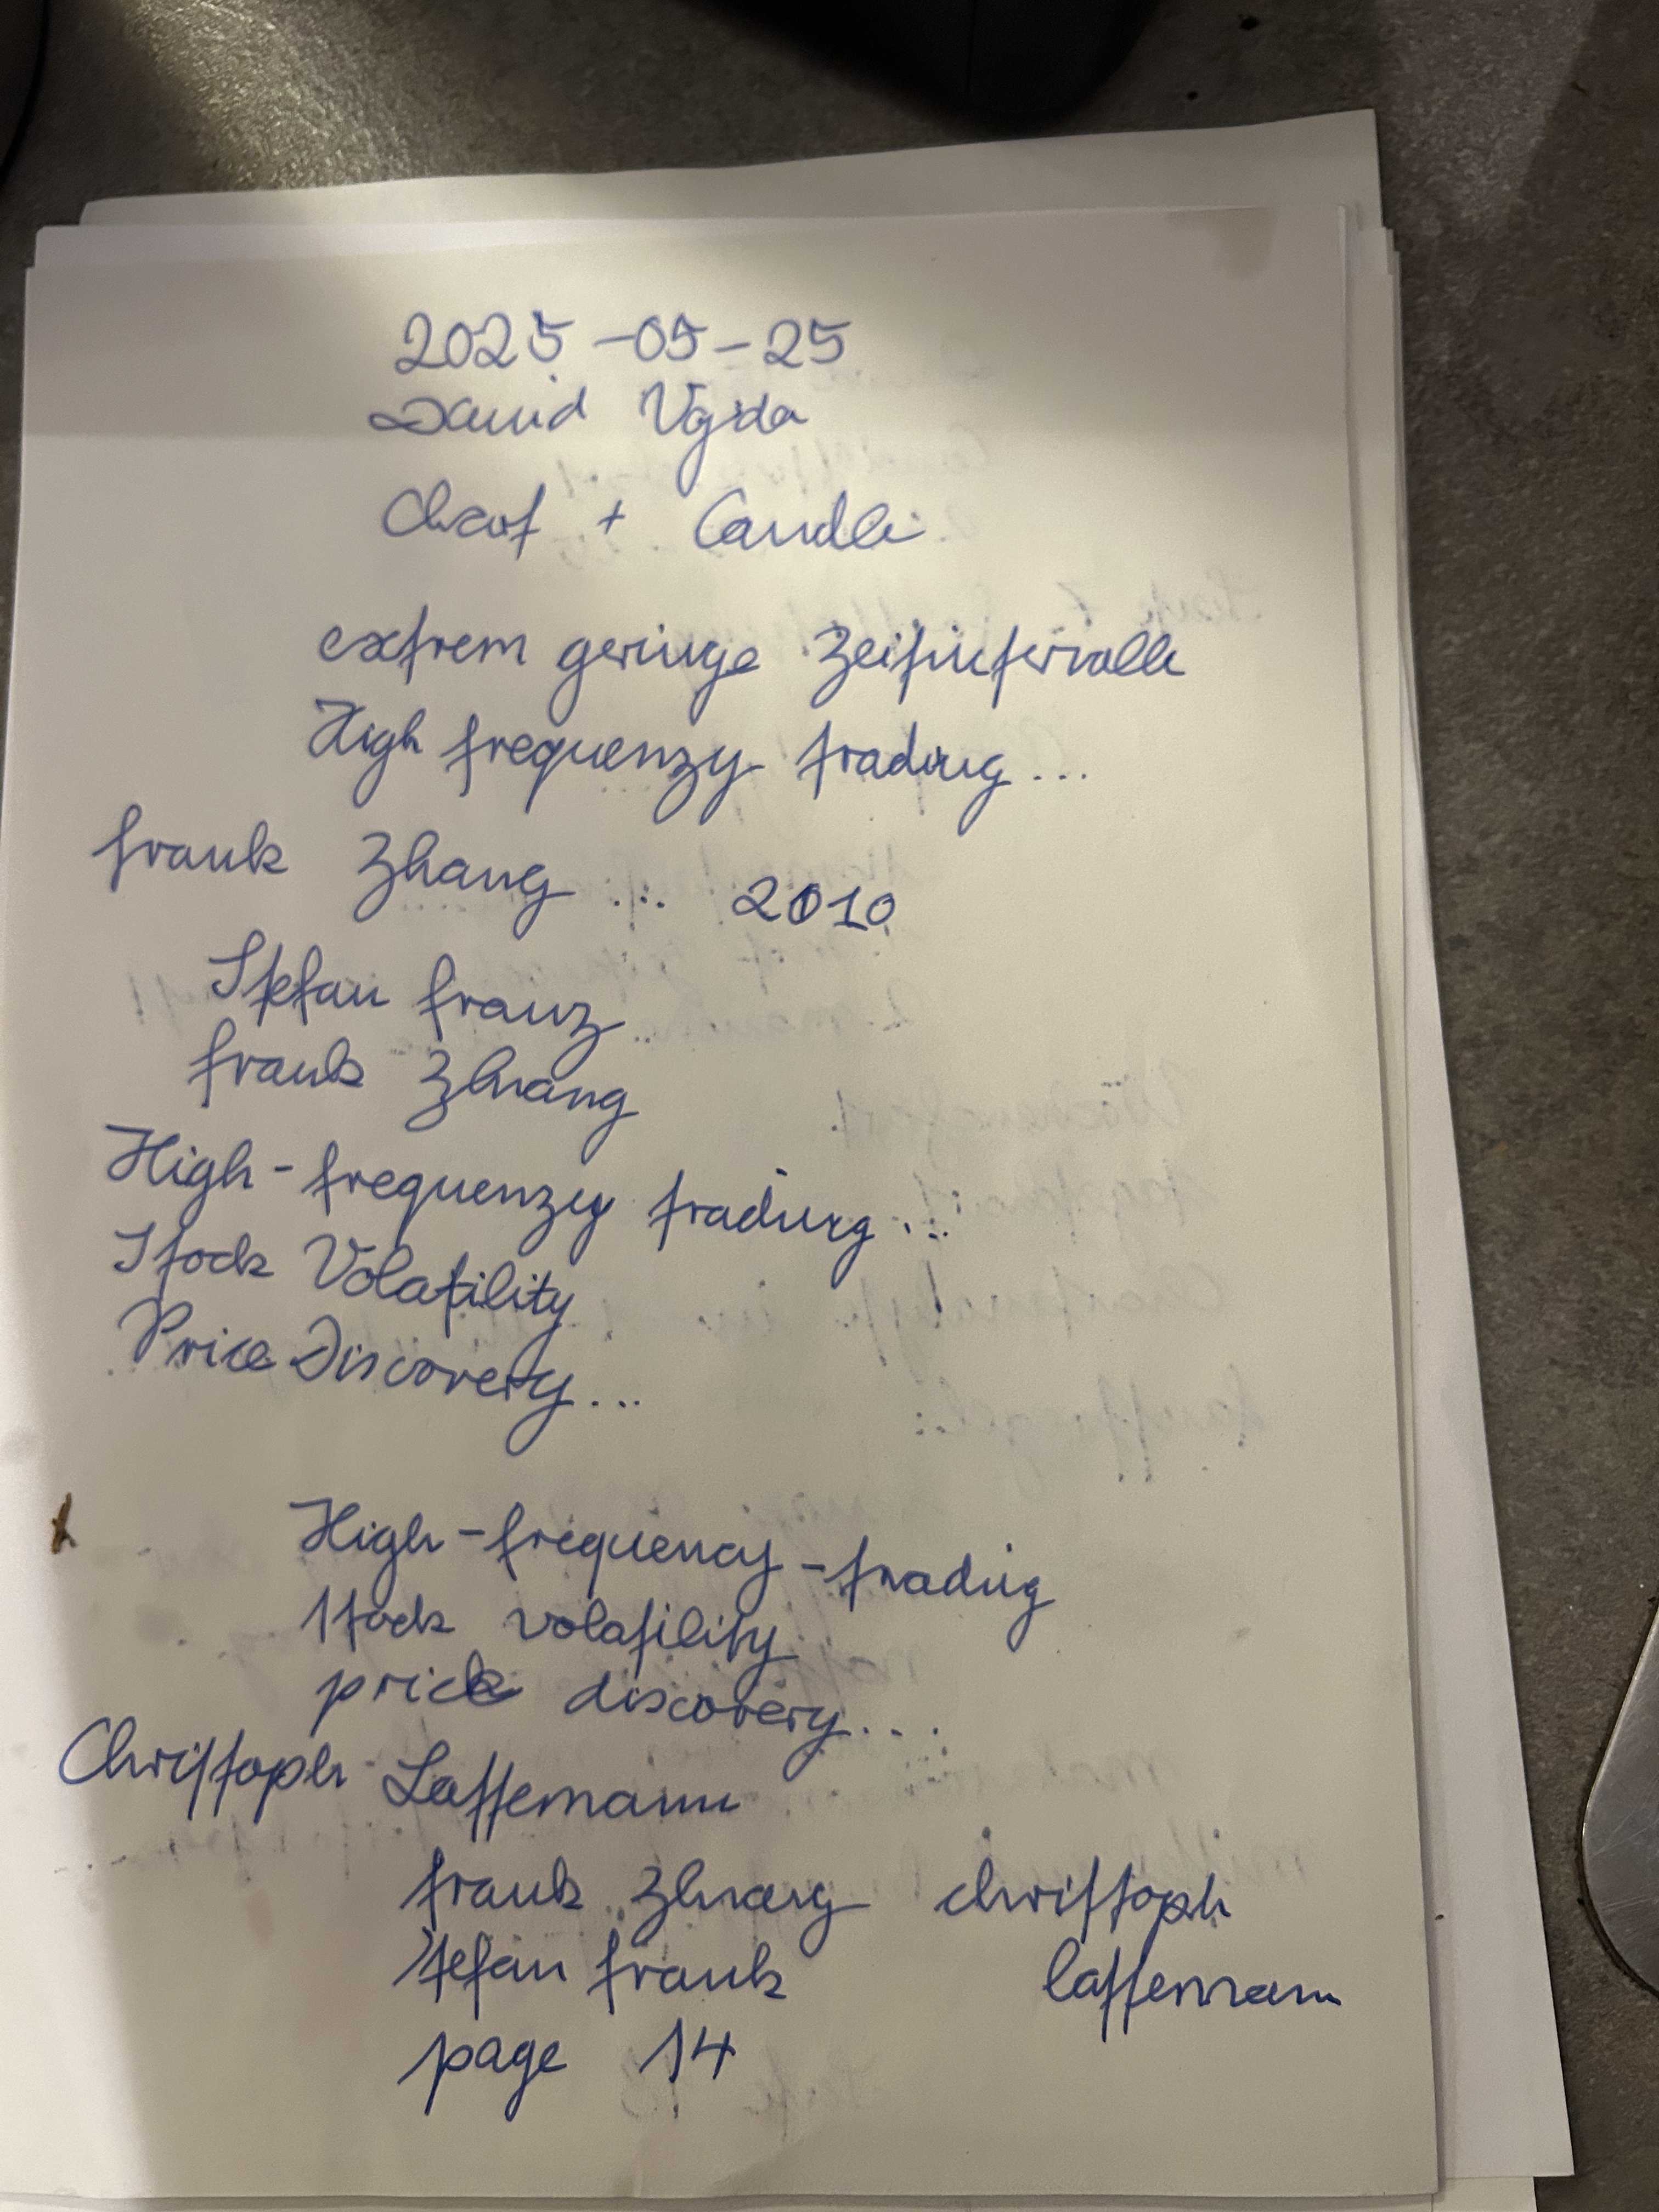 2025-05-25
David Vajda
Chart + Candle
extrem geringe Zeitintervalle
High frequenzy trading...
frank Zhang ... 2010
Stefan franz
frank Zhang
High-frequenzy trading...
Stock Volatility
Price Discovery...
High-frequency-trading
Stock volatility
price discovery....
Christoph Lattemann
frank Zhang christoph
stefan frank lattemann
page 14